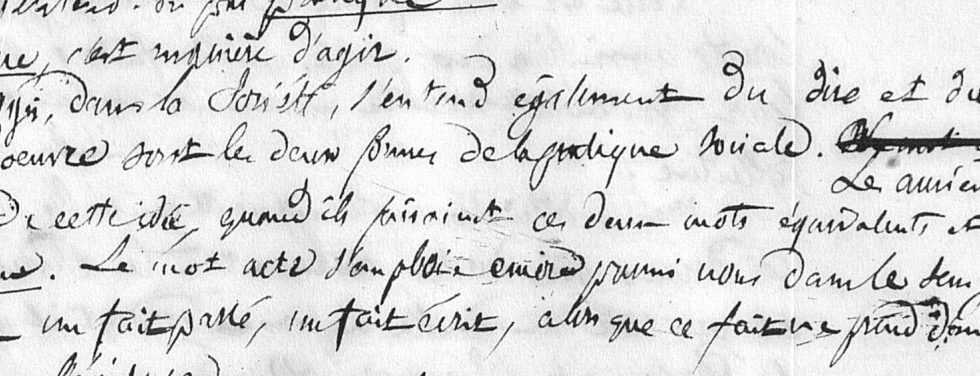 pratique
c'est manière d'agir.
Agir, dans la Société, s'entend également du dire et du
oeuvre sont les deux formes de la pratique sociale.
Les anciens
cette idée, quand ils faisaient ces deux mots équivalents et
Le mot acte s'emploie encore parmi nous dans le sens
un fait parlé, un fait écrit, alors que ce fait ne prend